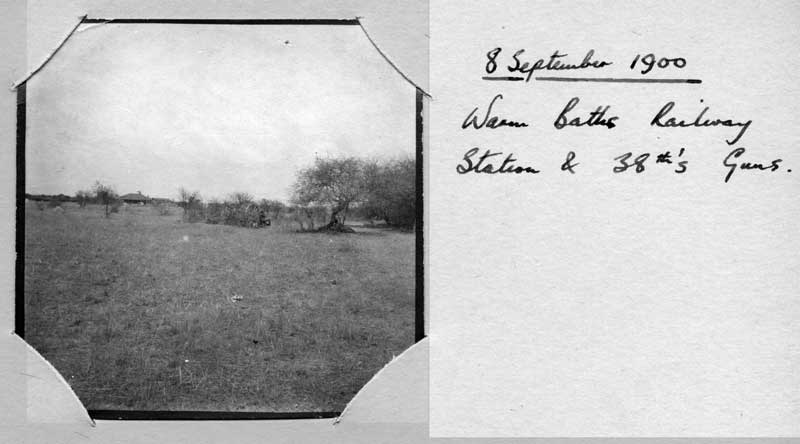 8 September 1900
Warm Baths Railway
Station & 38th's Guns.